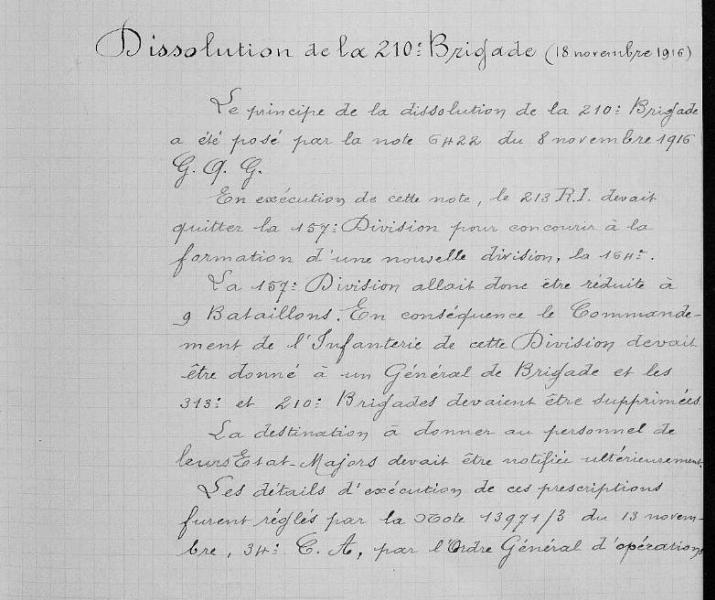 Dissolution de la 210e Brigade (18 novembre 1916)
Le principe de la dissolution de la 210e Brigade
a été posé par la note 6422 du 8 novembre 1916
G. Q. G.
En exécution de cette note, le 213 R.I. devait
quitter la 157e Division pour concourir à la
formation d'une nouvelle division, la 164e.
La 157e Division allait donc être réduite à
9 Bataillons. En conséquence le Commande-
ment de l'Infanterie de cette Division devait
être donné à un Général de Brigade et les
313e et 210e Brigades devaient être supprimées
La destination à donner au personnel de
leurs Etat-Majors devait être notifiée ultérieurement.
Les détails d'exécution de ces prescriptions
furent réglés par la Note 13971/3 du 13 novem-
bre, 34e C. A, par l'Ordre Général d'opérations